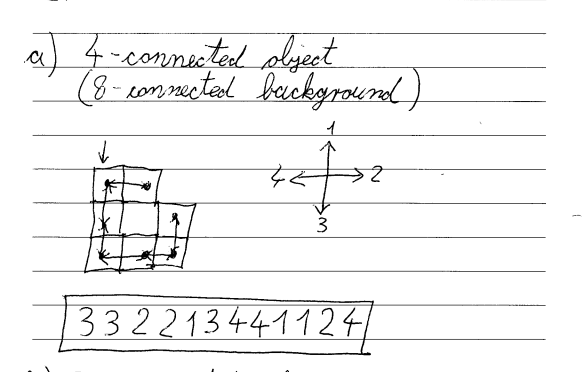 a) 4-connected object
(8-connected background)
1
4 2
3
332213441124